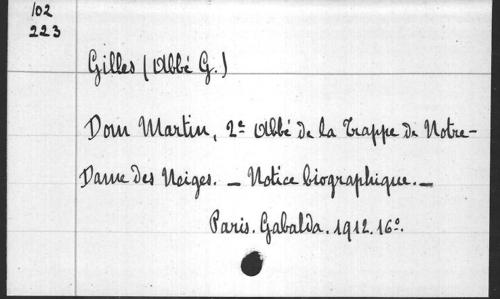 102
223
Gilles (Abbé G.)
Dom Martin, 2e Abbé de la Trappe de Notre-
Dame des Neiges. — Notice biographique. —
Paris. Gabalda. 1912. 16º.